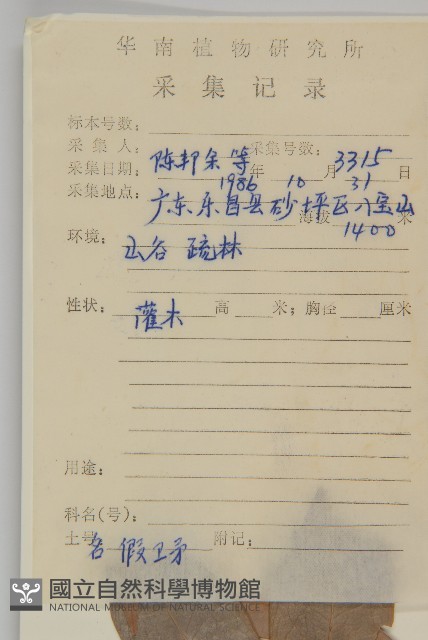 华南植物研究所
采集记录
标本号数:
采集人: 陈邦余等 采集号数: 3315
采集日期: 1986 年 10 月 31 日
采集地点: 广东乐昌县砂坪区八宝山
海拔 1400 米
环境: 山谷 疏林
性状: 灌木 高 米; 胸径 厘米
用途:
科名(号):
土名 假卫矛 附记:
國立自然科學博物館
NATIONAL MUSEUM OF NATURAL SCIENCE